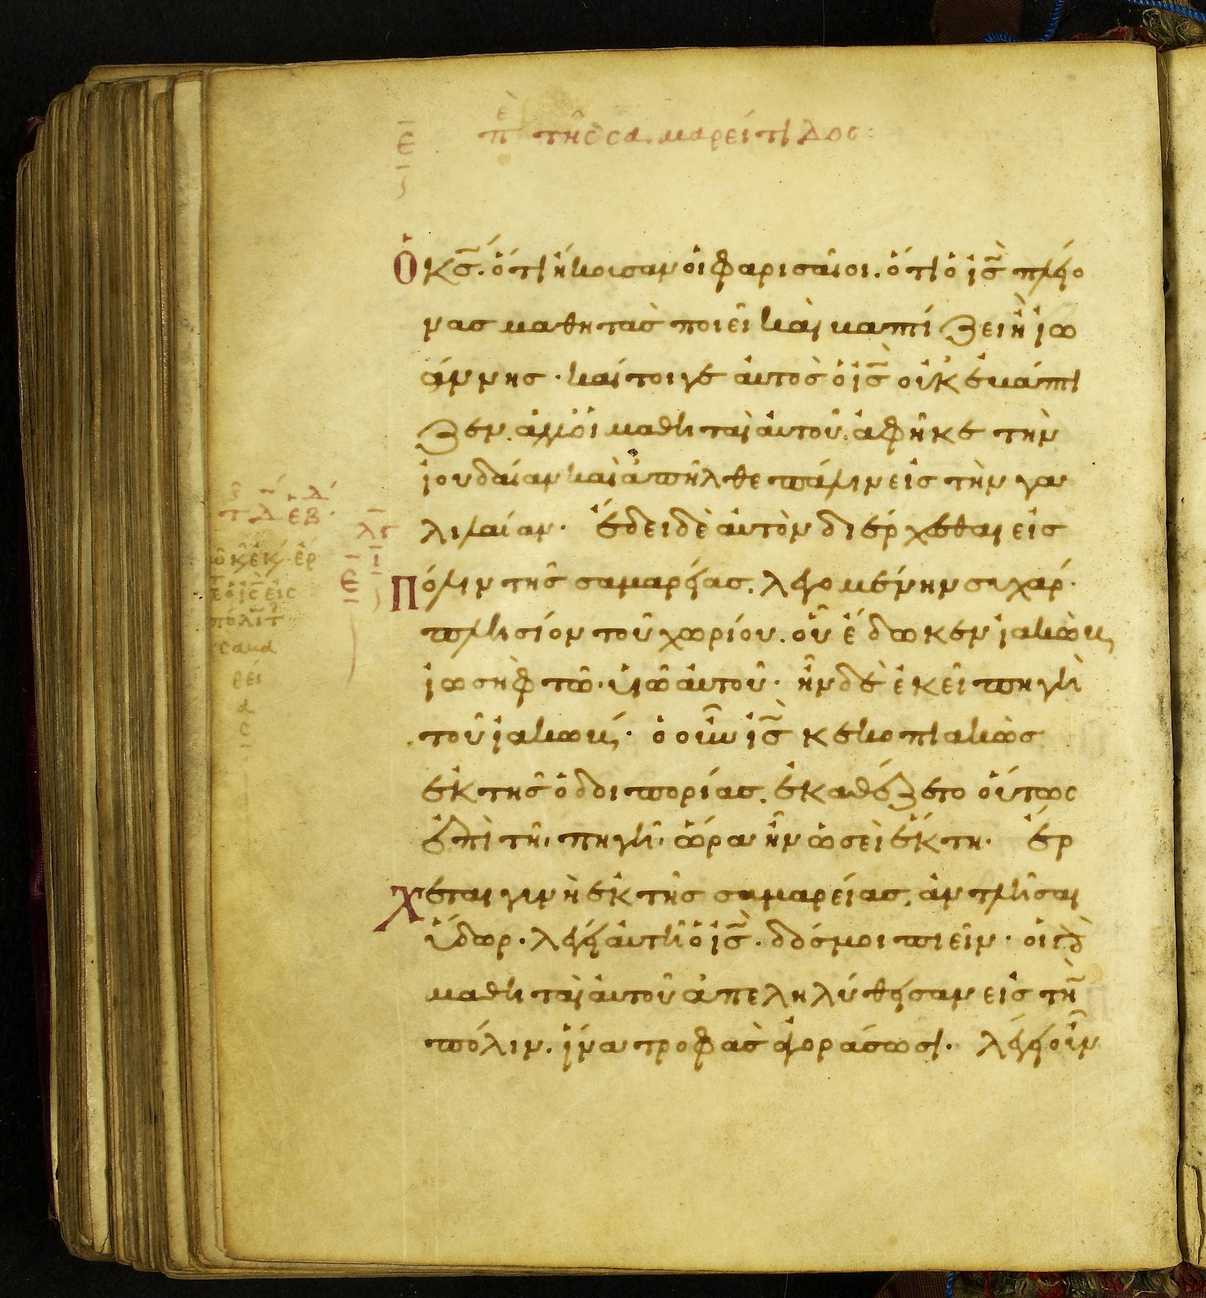 Ε
πε τῆς σαμαρείτιδος:
ὁ κς̅. ὅτι ἤκουσαν οἱ φαρισαῖοι. ὅτι ὁ ις̅ πλείο
νας μαθητὰς ποιεῖ καὶ βαπτίζει ἢ ἰω
άννης· καίτοιγε αὐτὸς ὁ ις̅ οὐκ ἐβάπτι
ζεν. ἀλλ' οἱ μαθηταὶ αὐτοῦ. ἀφῆκε τὴν
ἰουδαίαν καὶ ἀπῆλθε πάλιν εἰς τὴν γα
λιλαίαν· ἔδει δὲ αὐτὸν διέρχεσθαι εἰς
τ δ εβ
λς
ι
Ε
πόλιν τῆς σαμαρείας. λεγομένην συχάρ·
πλησίον τοῦ χωρίου. οὗ ἔδωκεν ἰακὼβ
ἰωσὴφ τῶ υἱῶ αὐτοῦ· ἦν δὲ ἐκεῖ πηγὴ
τοῦ ἰακώβ· ὁ οὖν ις̅ κεκοπιακὼς
ἐκ τῆς ὁδοιπορίας. ἐκαθέζετο οὕτως
ἐπὶ τῆ πηγῆ· ὥρα ἦν ὡσεὶ ἕκτη· ἔρ
χεται γυνὴ ἐκ τῆς σαμαρείας. ἀντλῆσαι
ὕδωρ· λέγει αὐτῆ ὁ ις̅. δός μοι πιεῖν· οἱ δὲ
μαθηταὶ αὐτοῦ ἀπεληλύθεισαν εἰς τὴν
πόλιν. ἵνα τροφὰς ἀγοράσωσι· λέγει οὖν